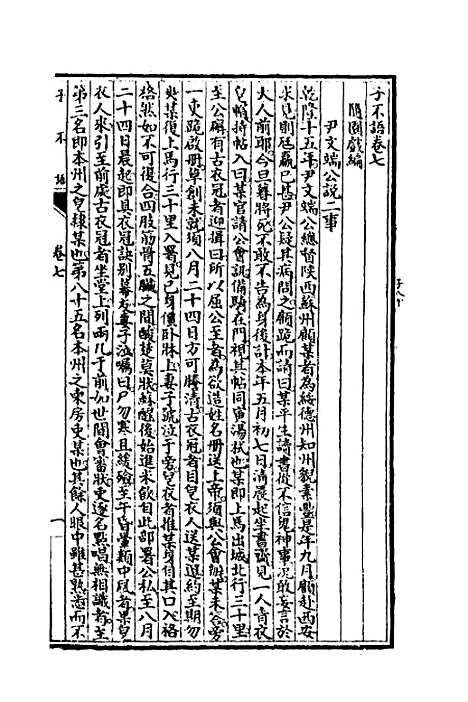 子不語卷七
隨園戲編
尹文端公說二事
乾隆十五年尹文端公總督陝西蘇州顧某者為綏德州知州貌素豐是年九月顧赴西安
求見則尫羸已甚尹公疑其病問之顧跪而請曰某平生讀書從不信鬼神事況敢妄言於
大人前耶今旦暮將死不敢不告為身後計本年五月初七日清晨起坐書齋見一人青衣
皂帽持帖入曰某官請公會訊備騎在門視其帖同寅湯栻也某即上馬出城北行三十里
至公廨有古衣冠者迎揖曰所以屈公至者為欲造姓名冊送上帝須與公會辦某未答旁
一吏跪啟冊草創未就須八月二十四日方可騰清古衣冠者目皂衣人送某還約至期勿
爽某復上馬行三十里入署見己身僵卧牀上妻子號泣于旁皂衣者推某身自其口入格
格然如不可復合四肢筋骨五臟之間酸楚莫狀蘇醒後始進米飲自此部署公私至八月
二十四日晨起即具衣冠訣別幕友妻子泣囑曰尸勿寒且緩殮至午昏暈類中風者某皂
衣人來引至前處古衣冠者坐堂上列兩几于前如世間會審狀吏逐名點唱無相識者至
第三名即本州之皂隸某也第八十五名本州之東房吏某也其餘人眼中雖甚熟悉而不
子不語
卷七
一